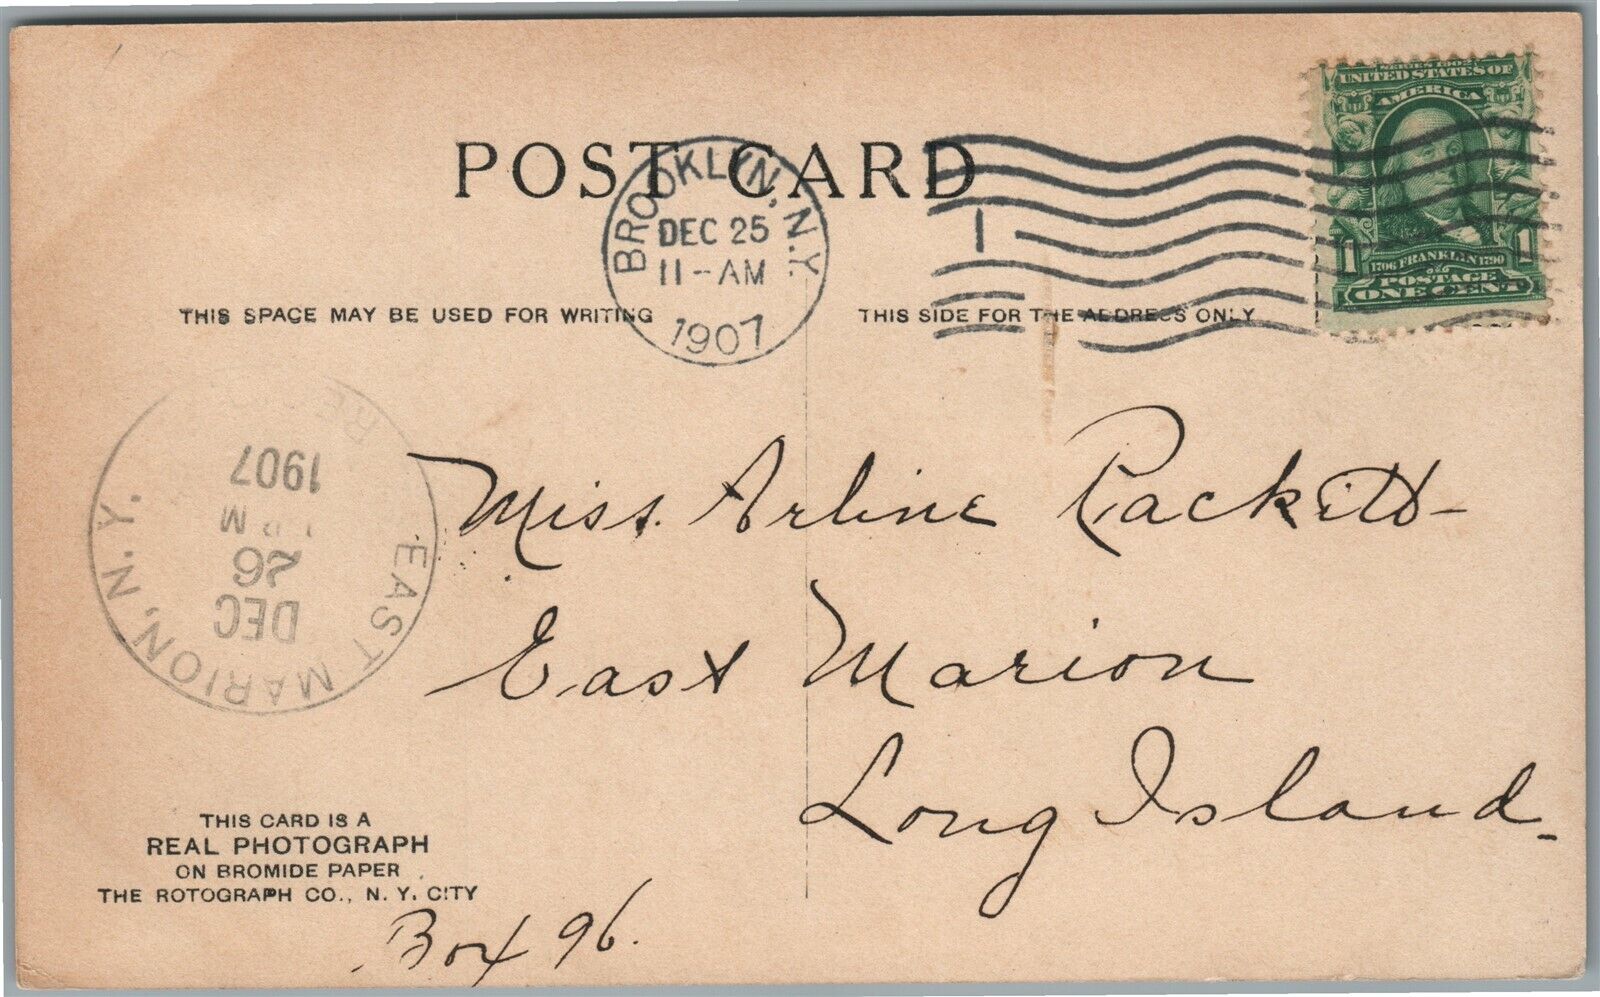 POST CARD
BROOKLYN, N.Y.
DEC 25
11-AM
1907
SERIES 1902
UNITED STATES OF
AMERICA
1 1
1706 FRANKLIN 1790
POSTAGE
ONE CENT
1
THIS SPACE MAY BE USED FOR WRITING
THIS SIDE FOR THE ADDRESS ONLY
EAST MARION, N.Y.
DEC
26
1907
Miss. Arline Rackett-
East Marion
Long Island_
THIS CARD IS A
REAL PHOTOGRAPH
ON BROMIDE PAPER
THE ROTOGRAPH CO., N. Y. CITY
Box 96.